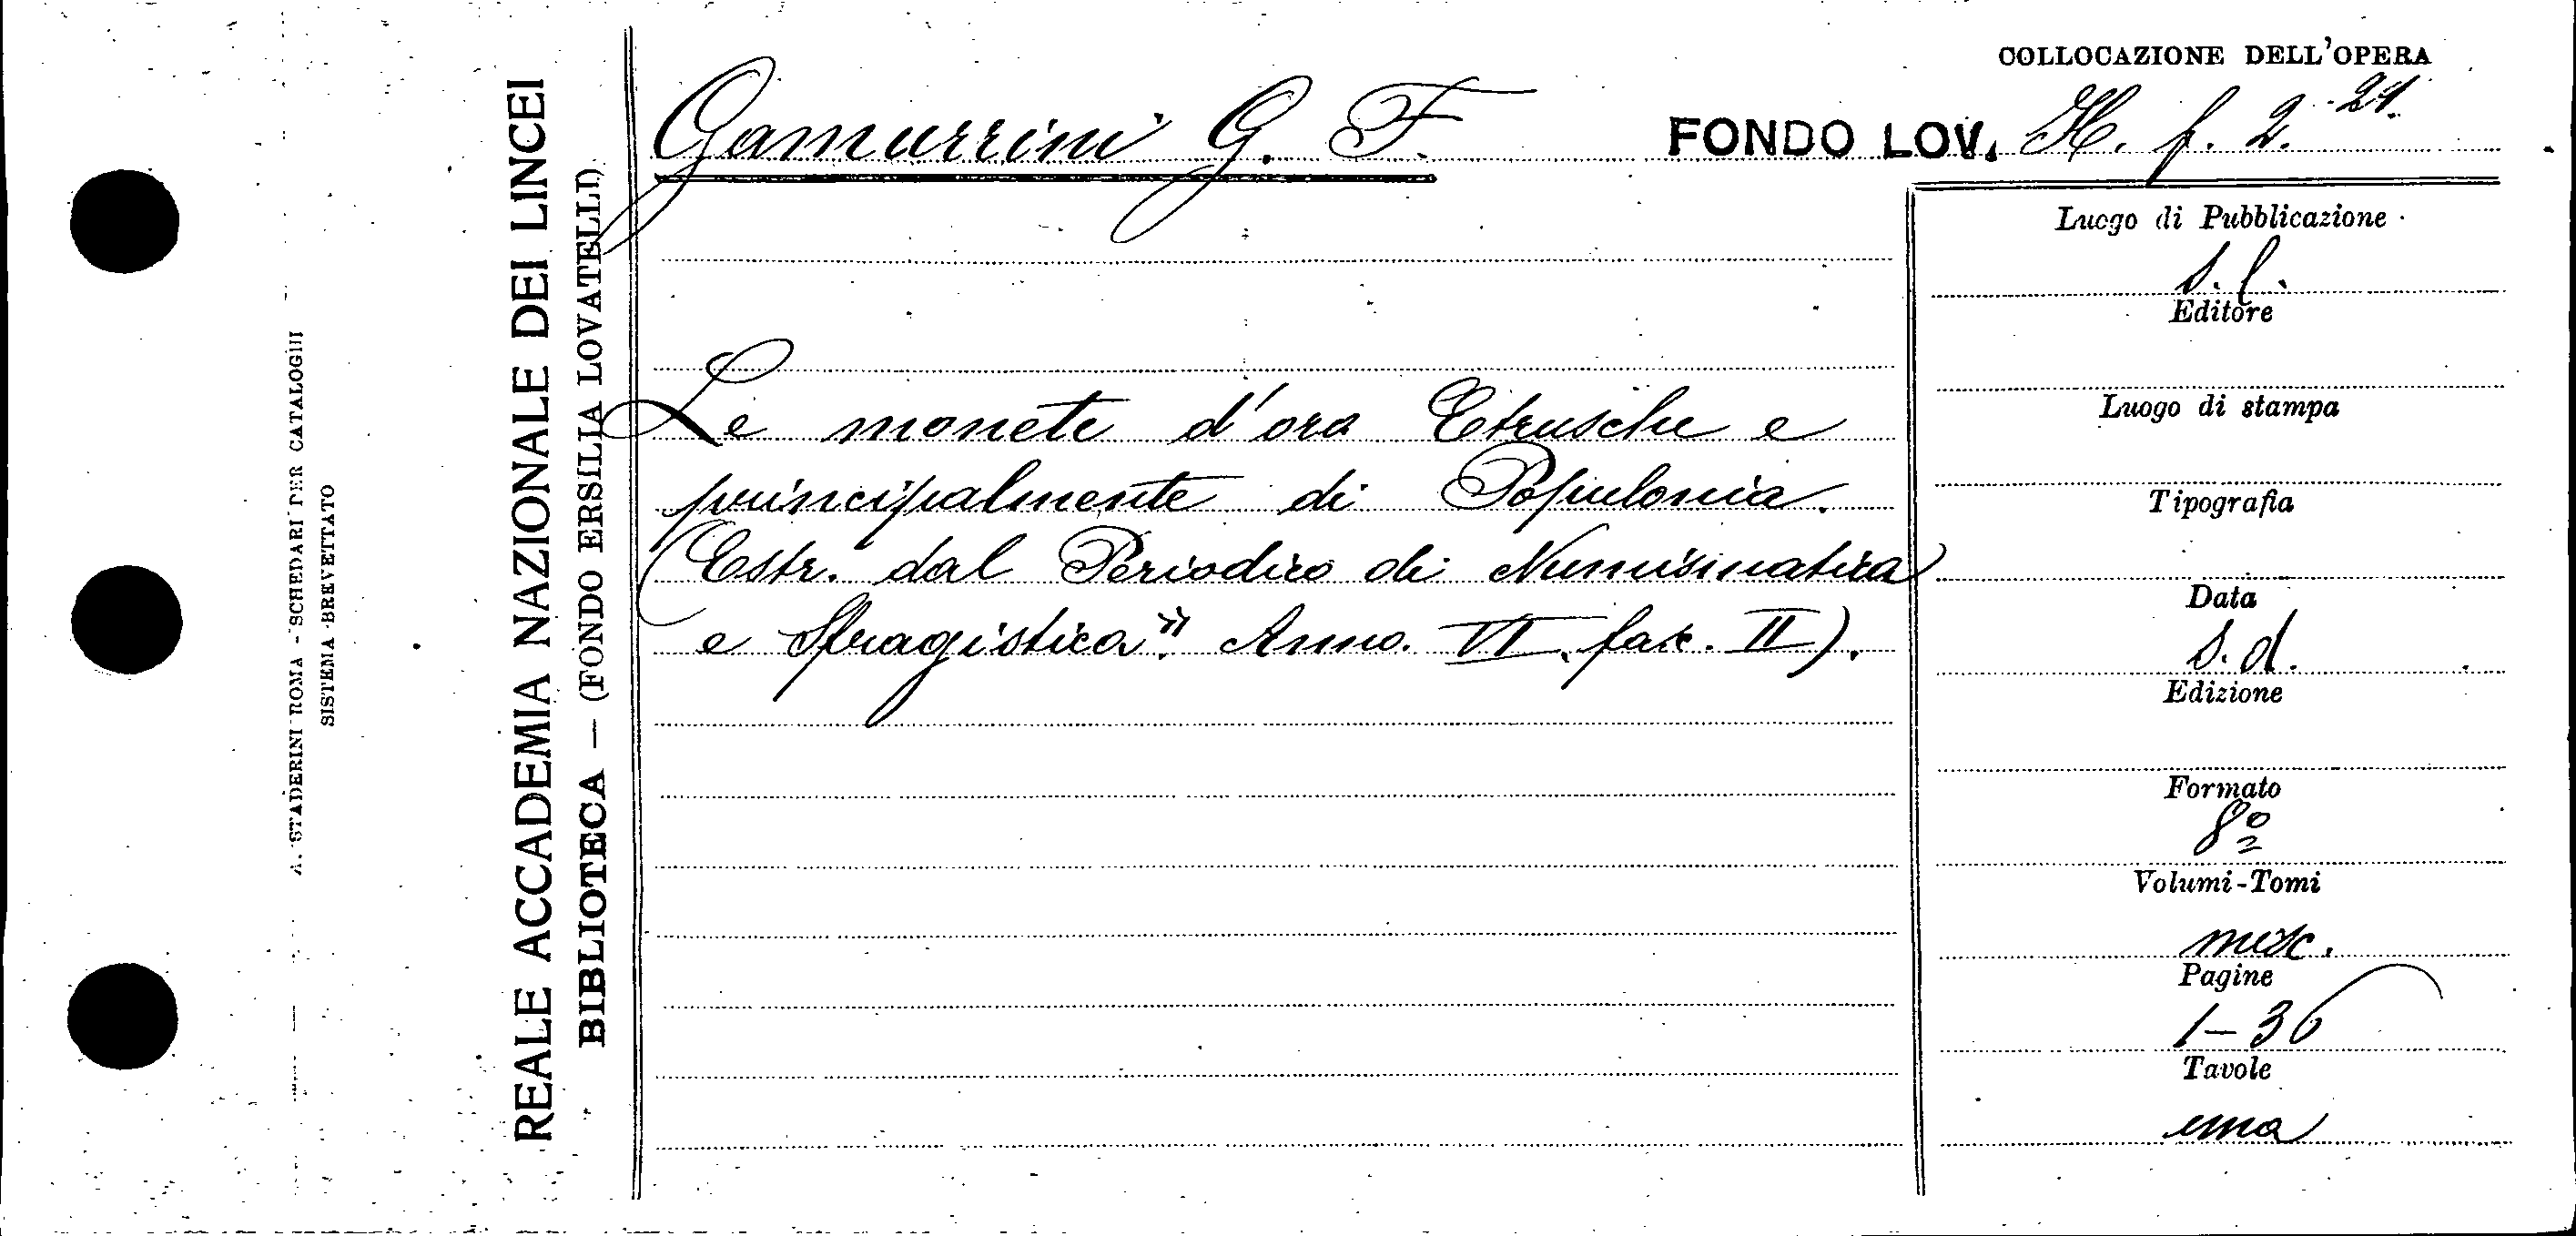 COLLOCAZIONE DELL'OPERA
Gamurrini G. F.
FONDO LOV. H. f. 2. 21.
Le monete d'oro Etrusche e
principalmente di Populonia.
(Estr. dal Periodico di Numismatica
e Sfragistica". Anno. VI. fasc. II).
Luogo di Pubblicazione
s. l.
Editore
Luogo di stampa
Tipografia
Data
s. d.
Edizione
Formato
8º
Volumi-Tomi
misc.
Pagine
1-36
Tavole
una
REALE ACCADEMIA NAZIONALE DEI LINCEI
BIBLIOTECA — (FONDO ERSILIA LOVATELLI)
A. STADERINI ROMA - SCHEDARI PER CATALOGHI
SISTEMA BREVETTATO